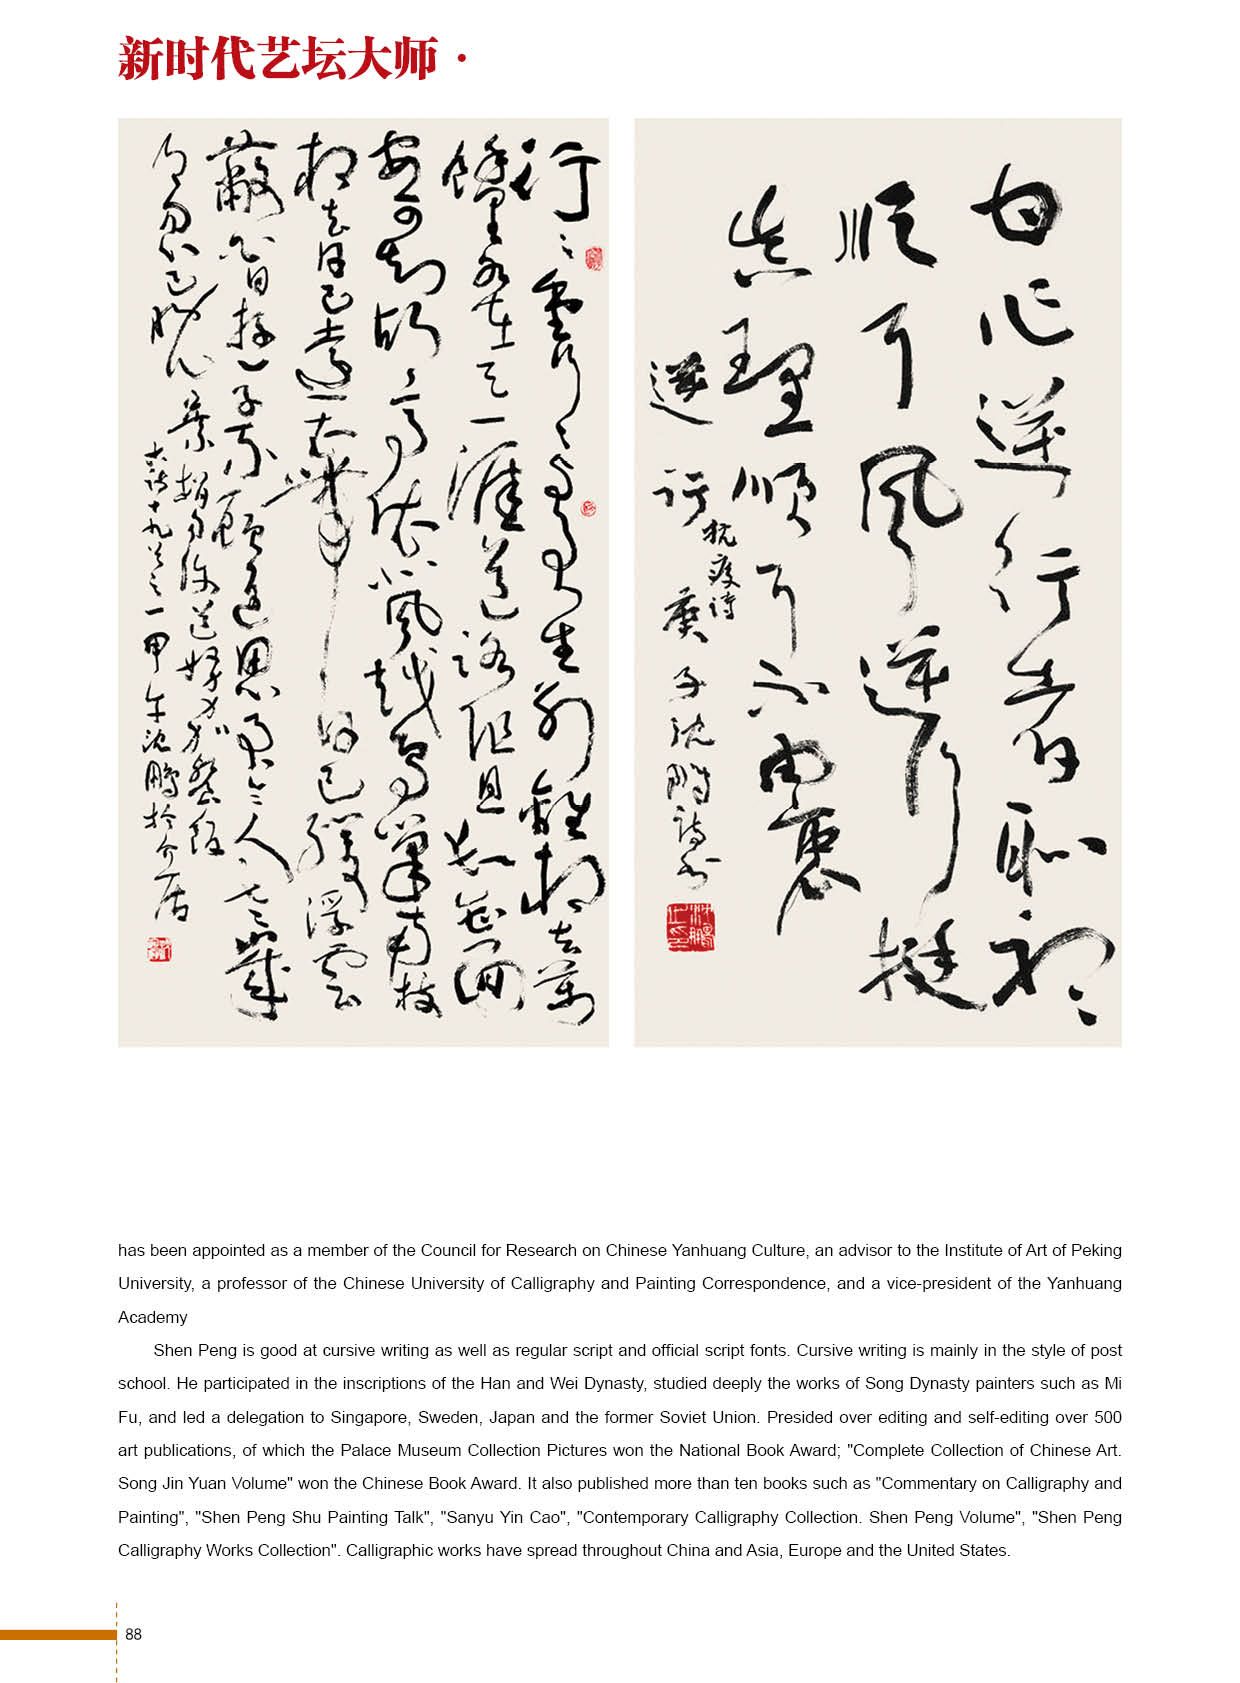 新时代艺坛大师·
行行重行行與君生別離相去萬
餘里各在天一涯道路阻且長會面
安可知胡馬依北風越鳥巢南枝
相去日已遠衣帶日已緩浮雲
蔽白日遊子不顧返思君令人老歲
月忽已晚棄捐勿復道努力加餐飯
古詩十九首之一甲午沈鵬於介居
逆行者
風逆行挺
真理順
由衷
逆行
抗疫诗
庚子沈鵬詩書
has been appointed as a member of the Council for Research on Chinese Yanhuang Culture, an advisor to the Institute of Art of Peking
University, a professor of the Chinese University of Calligraphy and Painting Correspondence, and a vice-president of the Yanhuang
Academy
Shen Peng is good at cursive writing as well as regular script and official script fonts. Cursive writing is mainly in the style of post
school. He participated in the inscriptions of the Han and Wei Dynasty, studied deeply the works of Song Dynasty painters such as Mi
Fu, and led a delegation to Singapore, Sweden, Japan and the former Soviet Union. Presided over editing and self-editing over 500
art publications, of which the Palace Museum Collection Pictures won the National Book Award; "Complete Collection of Chinese Art.
Song Jin Yuan Volume" won the Chinese Book Award. It also published more than ten books such as "Commentary on Calligraphy and
Painting", "Shen Peng Shu Painting Talk", "Sanyu Yin Cao", "Contemporary Calligraphy Collection. Shen Peng Volume", "Shen Peng
Calligraphy Works Collection". Calligraphic works have spread throughout China and Asia, Europe and the United States.
88